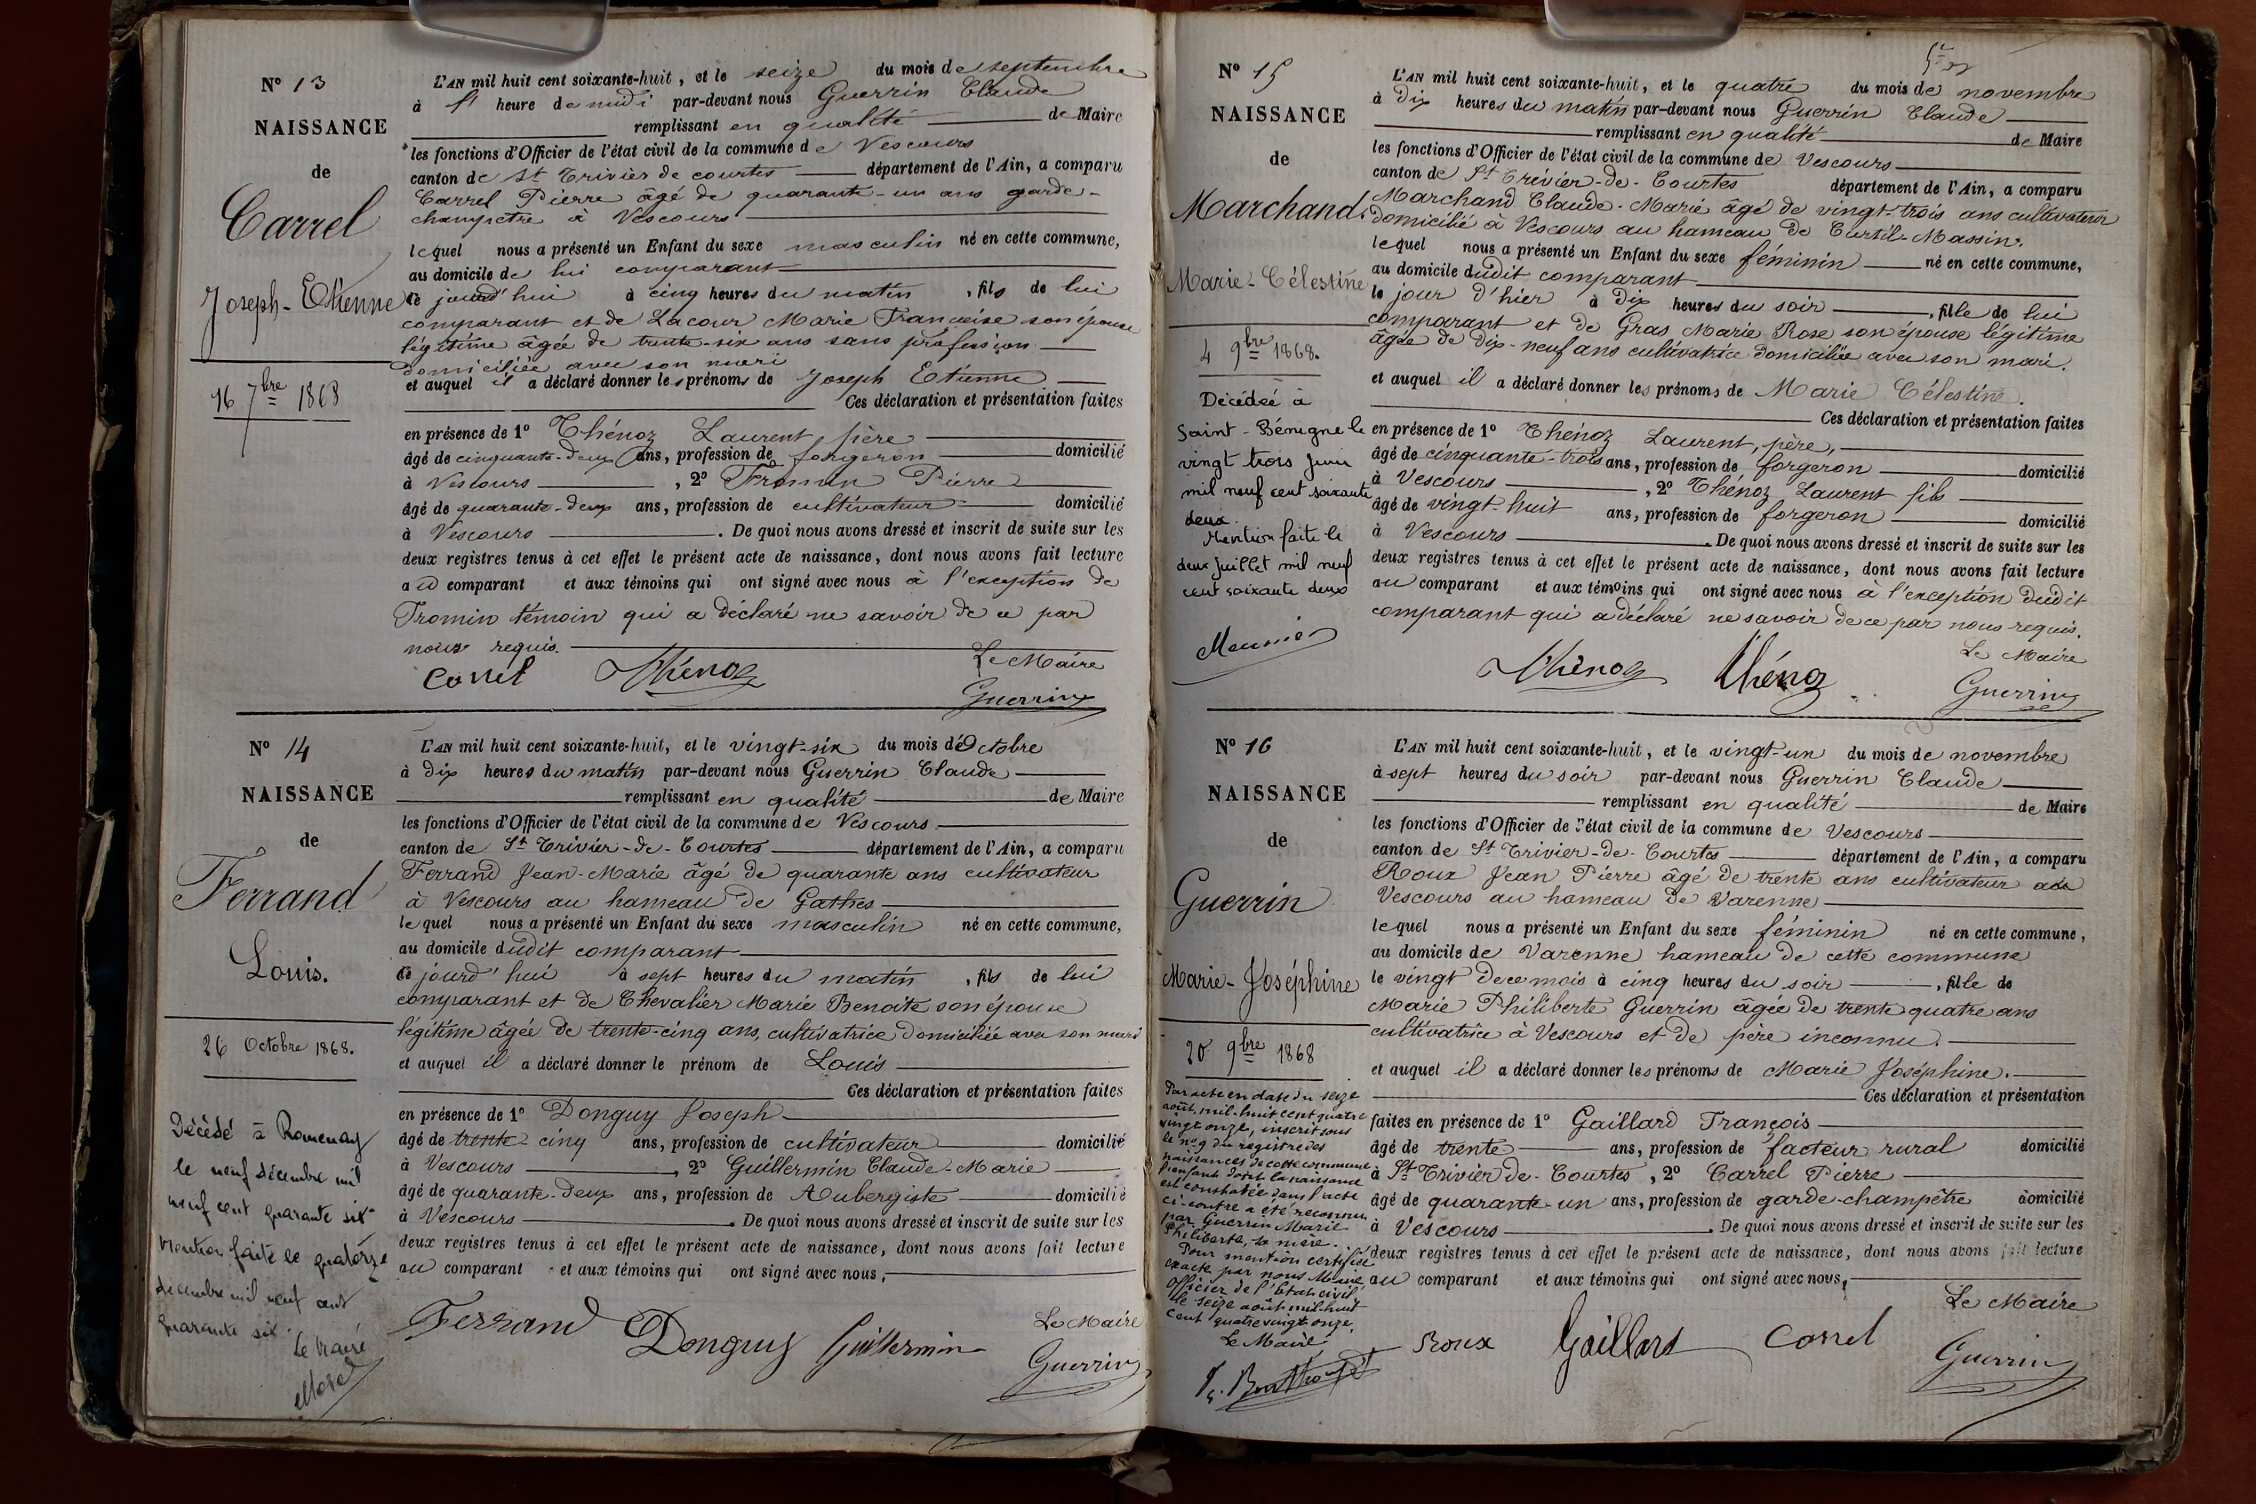 N° 13
NAISSANCE
de
Carrel
Joseph-Etienne
16 7bre 1868
L'AN mil huit cent soixante-huit, et le seize du mois de septembre
à heure de midi par-devant nous Guerrin Claude
remplissant en qualité de Maire
les fonctions d'Officier de l'état civil de la commune de Vescours
canton de St Trivier de courtes département de l'Ain, a comparu
Carrel Pierre âgé de quarante-un ans garde-
champetre à Vescours
lequel nous a présenté un Enfant du sexe masculin né en cette commune,
au domicile de lui comparant
ce jourd'hui à cinq heures du matin, fils de lui
comparant et de Lacour Marie Francoise son épouse
légitime âgée de trente-six ans sans profession
domiciliée avec son mari
et auquel il a déclaré donner les prénoms de Joseph Etienne
Ces déclaration et présentation faites
en présence de 1° Thénoz Laurent, père
âgé de cinquante-deux ans, profession de forgeron domicilié
à Vescours, 2° Fromin Pierre
âgé de quarante-deux ans, profession de cultivateur domicilié
à Vescours. De quoi nous avons dressé et inscrit de suite sur les
deux registres tenus à cet effet le présent acte de naissance, dont nous avons fait lecture
au comparant et aux témoins qui ont signé avec nous à l'exception de
Fromin témoin qui a déclaré ne savoir de ce par
nous requis.
Le Maire
Carrel Thénoz Guerrin
N° 14
NAISSANCE
de
Ferrand
Louis.
26 Octobre 1868.
Décédé à Romenay
le neuf décembre mil
neuf cent quarante six
Mention faite le quatorze
décembre mil neuf cent
quarante six.
Le Maire
L'AN mil huit cent soixante-huit, et le vingt-six du mois d'Octobre
à dix heures du matin par-devant nous Guerrin Claude
remplissant en qualité de Maire
les fonctions d'Officier de l'état civil de la commune de Vescours
canton de St Trivier-de-Courtes département de l'Ain, a comparu
Ferrand Jean-Marie âgé de quarante ans cultivateur
à Vescours au hameau de Gathes
lequel nous a présenté un Enfant du sexe masculin né en cette commune,
au domicile dudit comparant
ce jourd'hui à sept heures du matin, fils de lui
comparant et de Chevalier Marie Benoite son épouse
légitime âgée de trente-cinq ans, cultivatrice domiciliée avec son mari
et auquel il a déclaré donner le prénom de Louis
Ces déclaration et présentation faites
en présence de 1° Donguy Joseph
âgé de trente-cinq ans, profession de cultivateur domicilié
à Vescours, 2° Guillermin Claude-Marie
âgé de quarante-deux ans, profession de Aubergiste domicilié
à Vescours. De quoi nous avons dressé et inscrit de suite sur les
deux registres tenus à cet effet le présent acte de naissance, dont nous avons fait lecture
au comparant et aux témoins qui ont signé avec nous,
Le Maire
Ferrand Donguy Guillermin Guerrin
N° 15
NAISSANCE
de
Marchand
Marie-Célestine
4 9bre 1868.
Décédée à
Saint-Bénigne le
vingt trois juin
mil neuf cent soixante
deux.
Mention faite le
deux juillet mil neuf
cent soixante deux
Meunier
L'AN mil huit cent soixante-huit, et le quatre du mois de novembre
à dix heures du matin par-devant nous Guerrin Claude
remplissant en qualité de Maire
les fonctions d'Officier de l'état civil de la commune de Vescours
canton de St Trivier-de-Courtes département de l'Ain, a comparu
Marchand Claude-Marie âgé de vingt-trois ans cultivateur
domicilié à Vescours au hameau de Curtil-Massin.
lequel nous a présenté un Enfant du sexe féminin né en cette commune,
au domicile dudit comparant
le jour d'hier à dix heures du soir, fille de lui
comparant et de Gras Marie Rose son épouse légitime
âgée de dix-neuf ans cultivatrice domiciliée avec son mari.
et auquel il a déclaré donner les prénoms de Marie Célestine.
Ces déclaration et présentation faites
en présence de 1° Thénoz Laurent, père,
âgé de cinquante-trois ans, profession de forgeron domicilié
à Vescours, 2° Thénoz Laurent fils
âgé de vingt-huit ans, profession de forgeron domicilié
à Vescours. De quoi nous avons dressé et inscrit de suite sur les
deux registres tenus à cet effet le présent acte de naissance, dont nous avons fait lecture
au comparant et aux témoins qui ont signé avec nous à l'exception dudit
comparant qui a déclaré ne savoir de ce par nous requis.
Le Maire
Thénoz Thénoz Guerrin
N° 16
NAISSANCE
de
Guerrin
Marie-Joséphine
20 9bre 1868
Par acte en date du seize
août mil-huit cent quatre
vingt onze, inscrit sous
le n° 9 du registre des
naissances de cette commune
l'enfant dont la naissance
est constatée dans l'acte
ci-contre a été reconnu
par Guerrin Marie
Philiberte, sa mère.
Pour mention certifiée
exacte par nous Maire
officier de l'état civil
le seize août mil-huit
cent quatre vingt onze.
Le Maire
L'AN mil huit cent soixante-huit, et le vingt-un du mois de novembre
à sept heures du soir par-devant nous Guerrin Claude
remplissant en qualité de Maire
les fonctions d'Officier de l'état civil de la commune de Vescours
canton de St Trivier-de-Courtes département de l'Ain, a comparu
Roux Jean Pierre âgé de trente ans cultivateur à
Vescours au hameau de Varenne
lequel nous a présenté un Enfant du sexe féminin né en cette commune,
au domicile de Varenne hameau de cette commune
le vingt de ce mois à cinq heures du soir, fille de
Marie Philiberte Guerrin âgée de trente quatre ans
cultivatrice à Vescours et de père inconnu.
et auquel il a déclaré donner les prénoms de Marie Joséphine.
Ces déclaration et présentation
faites en présence de 1° Gaillard François
âgé de trente ans, profession de facteur rural domicilié
à St Trivier de Courtes, 2° Carrel Pierre
âgé de quarante-un ans, profession de garde-champêtre domicilié
à Vescours. De quoi nous avons dressé et inscrit de suite sur les
deux registres tenus à cet effet le présent acte de naissance, dont nous avons fait lecture
au comparant et aux témoins qui ont signé avec nous,
Le Maire
Roux Gaillard Carrel Guerrin